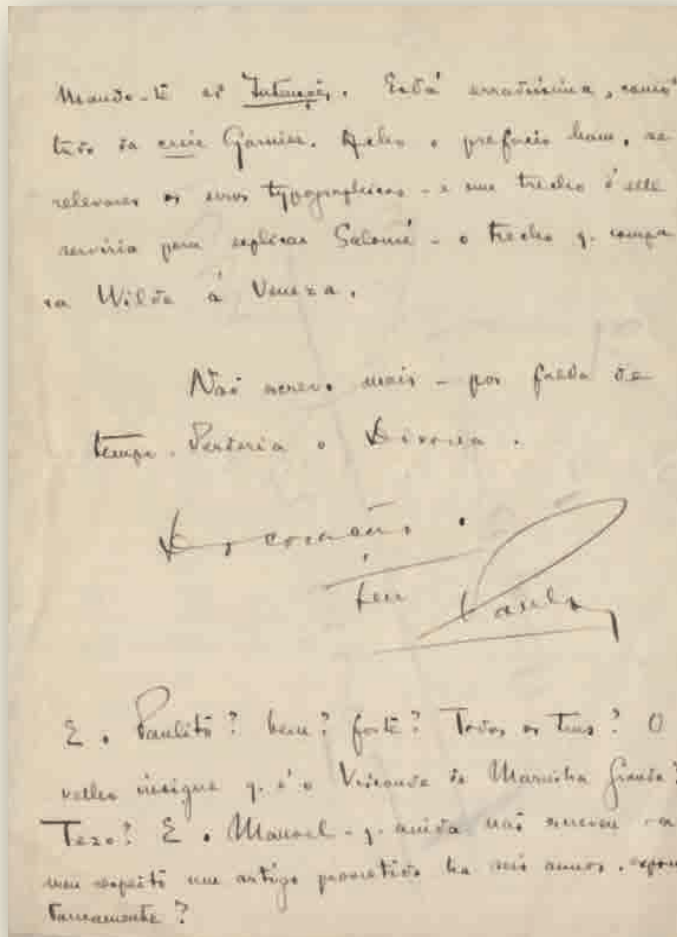 Mando-te as Intenções. Está erradissima, como
tudo da casa Garnier. Acho o prefacio bom, se
relevares os erros typographicos - e um trecho d'elle
serviria para explicar Salomé - o trecho q. compa
ra Wilde á Veneza.
Não escrevo mais - por falta de
tempo. Perderia o
De coração.
Teu Paulo
E o Paulito? bem? forte? Todos os teus? O
velho insigne q. é o Visconde de Marinha Grande?
Tezo? E o Manoel - q. ainda não escreveu a
meu respeito um artigo promettido ha seis annos, espon
taneamente?